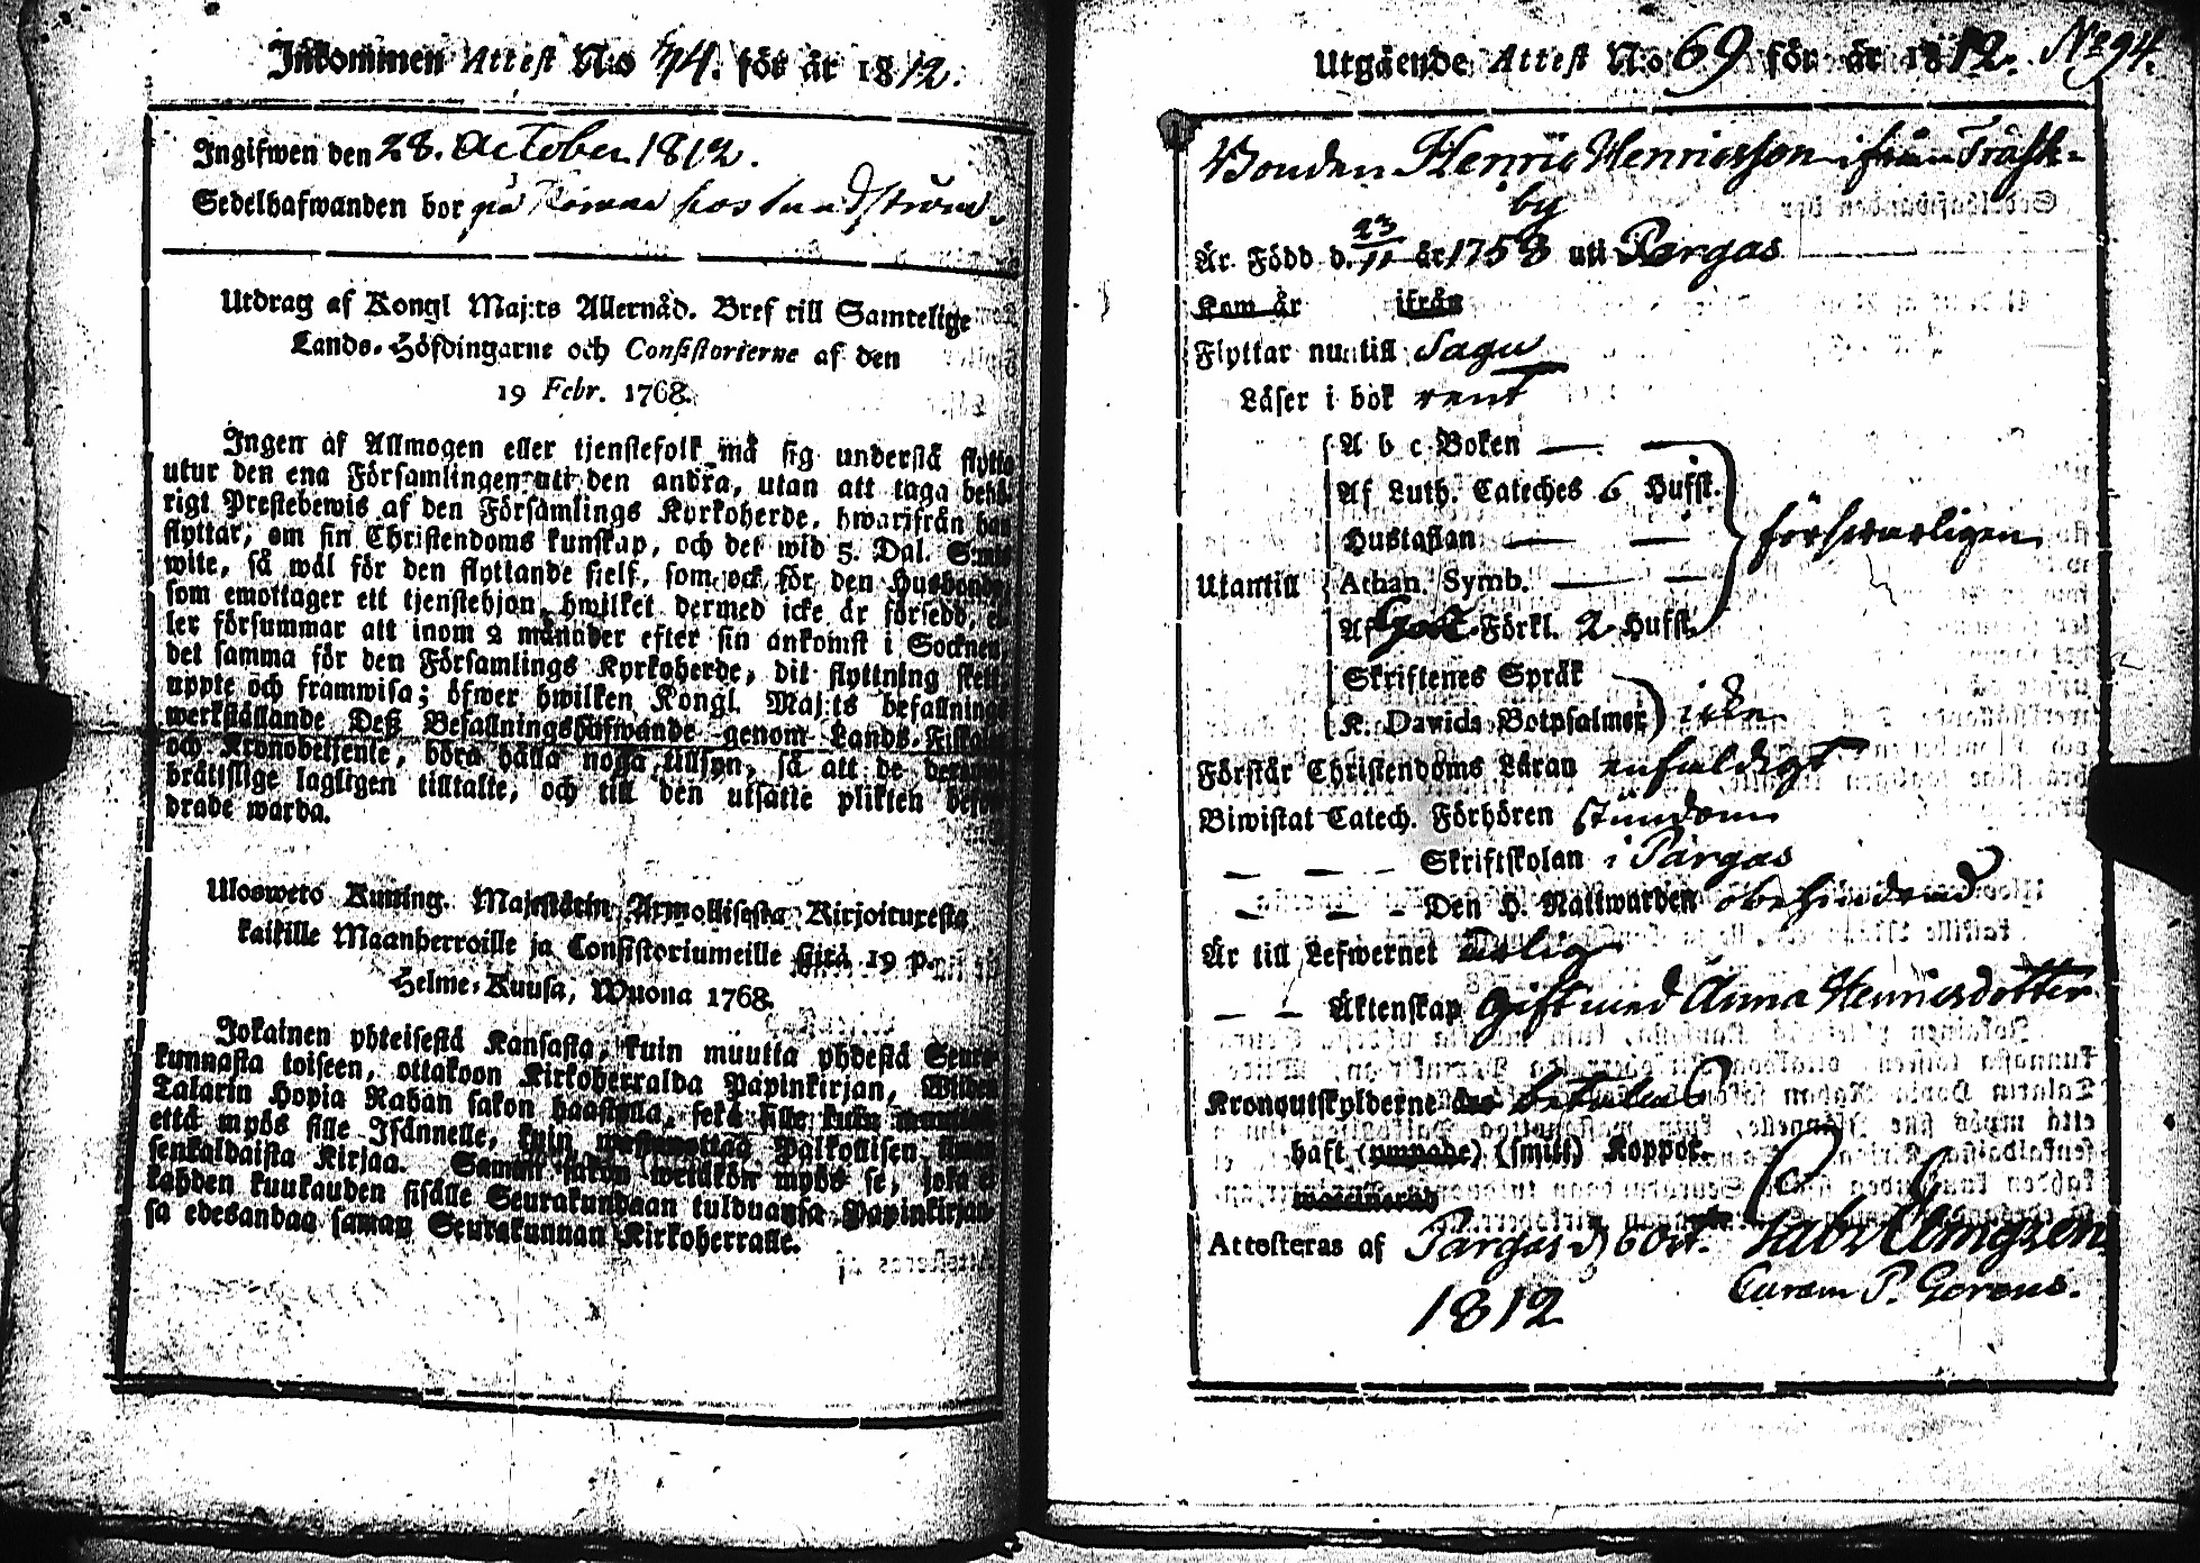 Inkommen Attest N:o 74. för år 1812.
Ingifwen den 28. October 1812.
Sedelhafwanden bor på hos
Utdrag af Kongl Maj:ts Allernåd. Bref till Samtelige
Lands-Höfdingarne och Consistorierne af den
19 Febr. 1768.
Ingen af Allmogen eller tjenstefolk må sig understå flytta
utur den ena Församlingen uti den andra, utan att taga behö-
rigt Prestebewis af den Församlings Kyrkoherde, hwarifrån han
flyttar, om sin Christendoms kunskap, och det wid 5. Dal. S:mts
wite, så wäl för den flyttande sjelf, som ock för den Husbonde,
som emottager ett tjenstehjon, hwilket dermed icke är försedd, el-
ler försummar att inom 2 månader efter sin ankomst i Socknen,
det samma för den Församlings Kyrkoherde, dit flyttning skett
uppte och framwisa; öfwer hwilken Kongl. Maj:ts befallnings
werkställande Deß Befallningshafwande genom Lands-Fiskaler
och Kronobetjente, böra hålla noga tillsyn, så att de
brätslige lagligen tilltalte, och till den utsatte plikten
drade warda.
Ulosweto Kuning. Majestätin Armollisesta Kirjoituxesta
kaikille Maanherroille ja Consistoriumeille siitä 19 p.
Helme-Kuusa, Wuona 1768.
Jokainen yhteisestä Kansasta, kuin muutta yhdestä Seura-
kunnasta toiseen, ottakoon Kirkoherralda Papinkirjan, Wiiden
Talarin Hopia Rahan sakon haastolla, sekä sille kuin muutta
että myös sille Isännelle, kuin Palkollisen ilman
senkaldaista Kirjaa. Saman sakon wetäkön myös se, joka ei
kahden kuukauden sisälle Seurakundaan tulduansa Papinkirjan-
sa edesandaa saman Seurakunnan Kirkoherralle.
Utgående Attest N:o 69 för år 1812. No 94.
Bonden Henric Henricsson ifrån Träsk-
by
Är Född d. 23/11 år 1758 uti Pargas
Kom år ifrån
Flyttar nu till Sagu
Läser i bok rent
A b c Boken
Af Luth. Cateches 6 Hufst.
Hustaflan
Utantill Athan. Symb. försvarligen
Af Förkl. 2 Hufst.
Skriftenes Språk
K. Dawids Botpsalmer icke
Förstår Christendoms Läran enfaldigt
Biwistat Catech. Förhören stundom
— — - Skriftskolan i Pargas
— — - Den H. Nattwarden obehindrad
Är till Lefwernet ärlig
— — Äktenskap gift med Anna Henricsdotter
Kronoutskylderne betalte
haft (ympade) (smitt) Koppor.
waccinerad
Attesteras af Pargas d 6 Oct. Gabr Elmgren
1812 Curam P. Gerens.